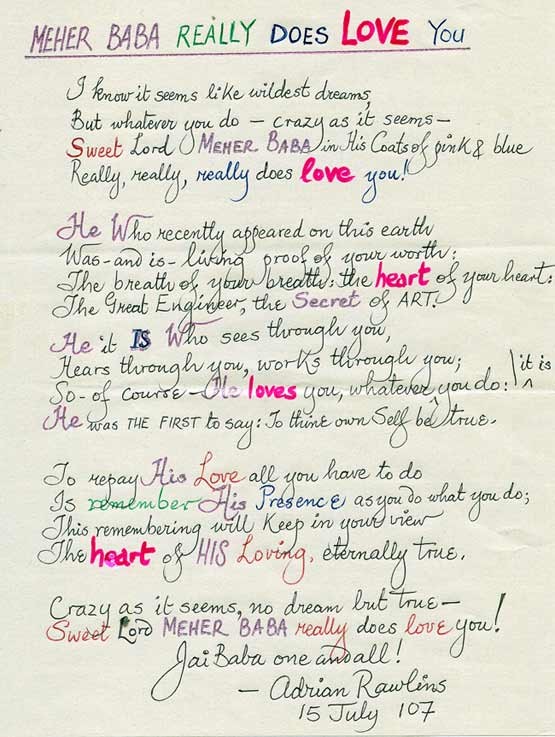 MEHER BABA REALLY DOES LOVE YOU
I know it seems like wildest dreams,
But whatever you do – crazy as it seems –
Sweet Lord MEHER BABA in His Coats of pink & blue
Really, really, really does love you!
He Who recently appeared on this earth
Was-and is- living proof of your worth:
The breath of your breath: the heart of your heart:
The Great Engineer, the Secret of ART.
He it IS Who sees through you,
Hears through you, works through you;
So- of course – He loves you, whatever ^ you do: | it is ^
He was THE FIRST to say: To thine own Self be true.
To repay His Love all you have to do
Is remember His Presence as you do what you do;
This remembering will Keep in your view
The heart of HIS Loving, eternally true.
Crazy as it seems, no dream but true –
Sweet Lord MEHER BABA really does love you!
Jai Baba one and all!
– Adrian Rawlins
15 July 107